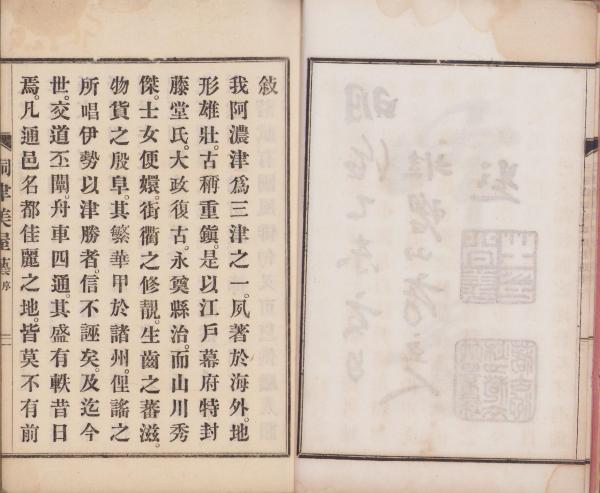 敍
我阿濃津爲三津之一。夙著於海外。地
形雄壯。古稱重鎭。是以江戶幕府特封
藤堂氏。大政復古。永奠縣治。而山川秀
傑。士女便嬛。街衢之修靚。生齒之蕃滋。
物貨之殷阜。其繁華甲於諸州。俚謠之
所唱伊勢以津勝者。信不誣矣。及迄今
世。交道丕闡。舟車四通。其盛有軼昔日
焉。凡通邑名都佳麗之地。皆莫不有前
洞津美 序